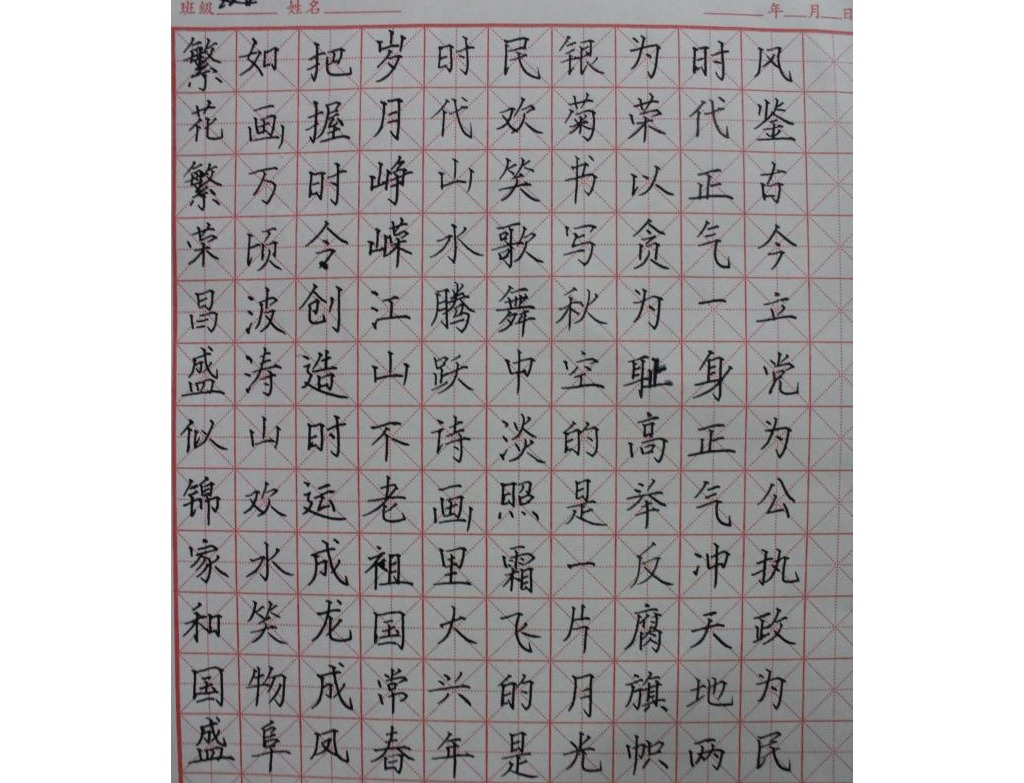 班級 姓名 年 月 日
繁花繁荣昌盛似锦家和国盛
如画万顷波涛山欢水笑物阜
把握时令创造时运成龙成凤
岁月峥嵘江山不老祖国常春
时代山水腾跃诗画里大兴年
民欢笑歌舞中淡照霜飞的是
银菊书写秋空的是一片月光
为荣以贪为耻高举反腐旗帜
时代正气一身正气冲天地两
风鉴古今立党为公执政为民